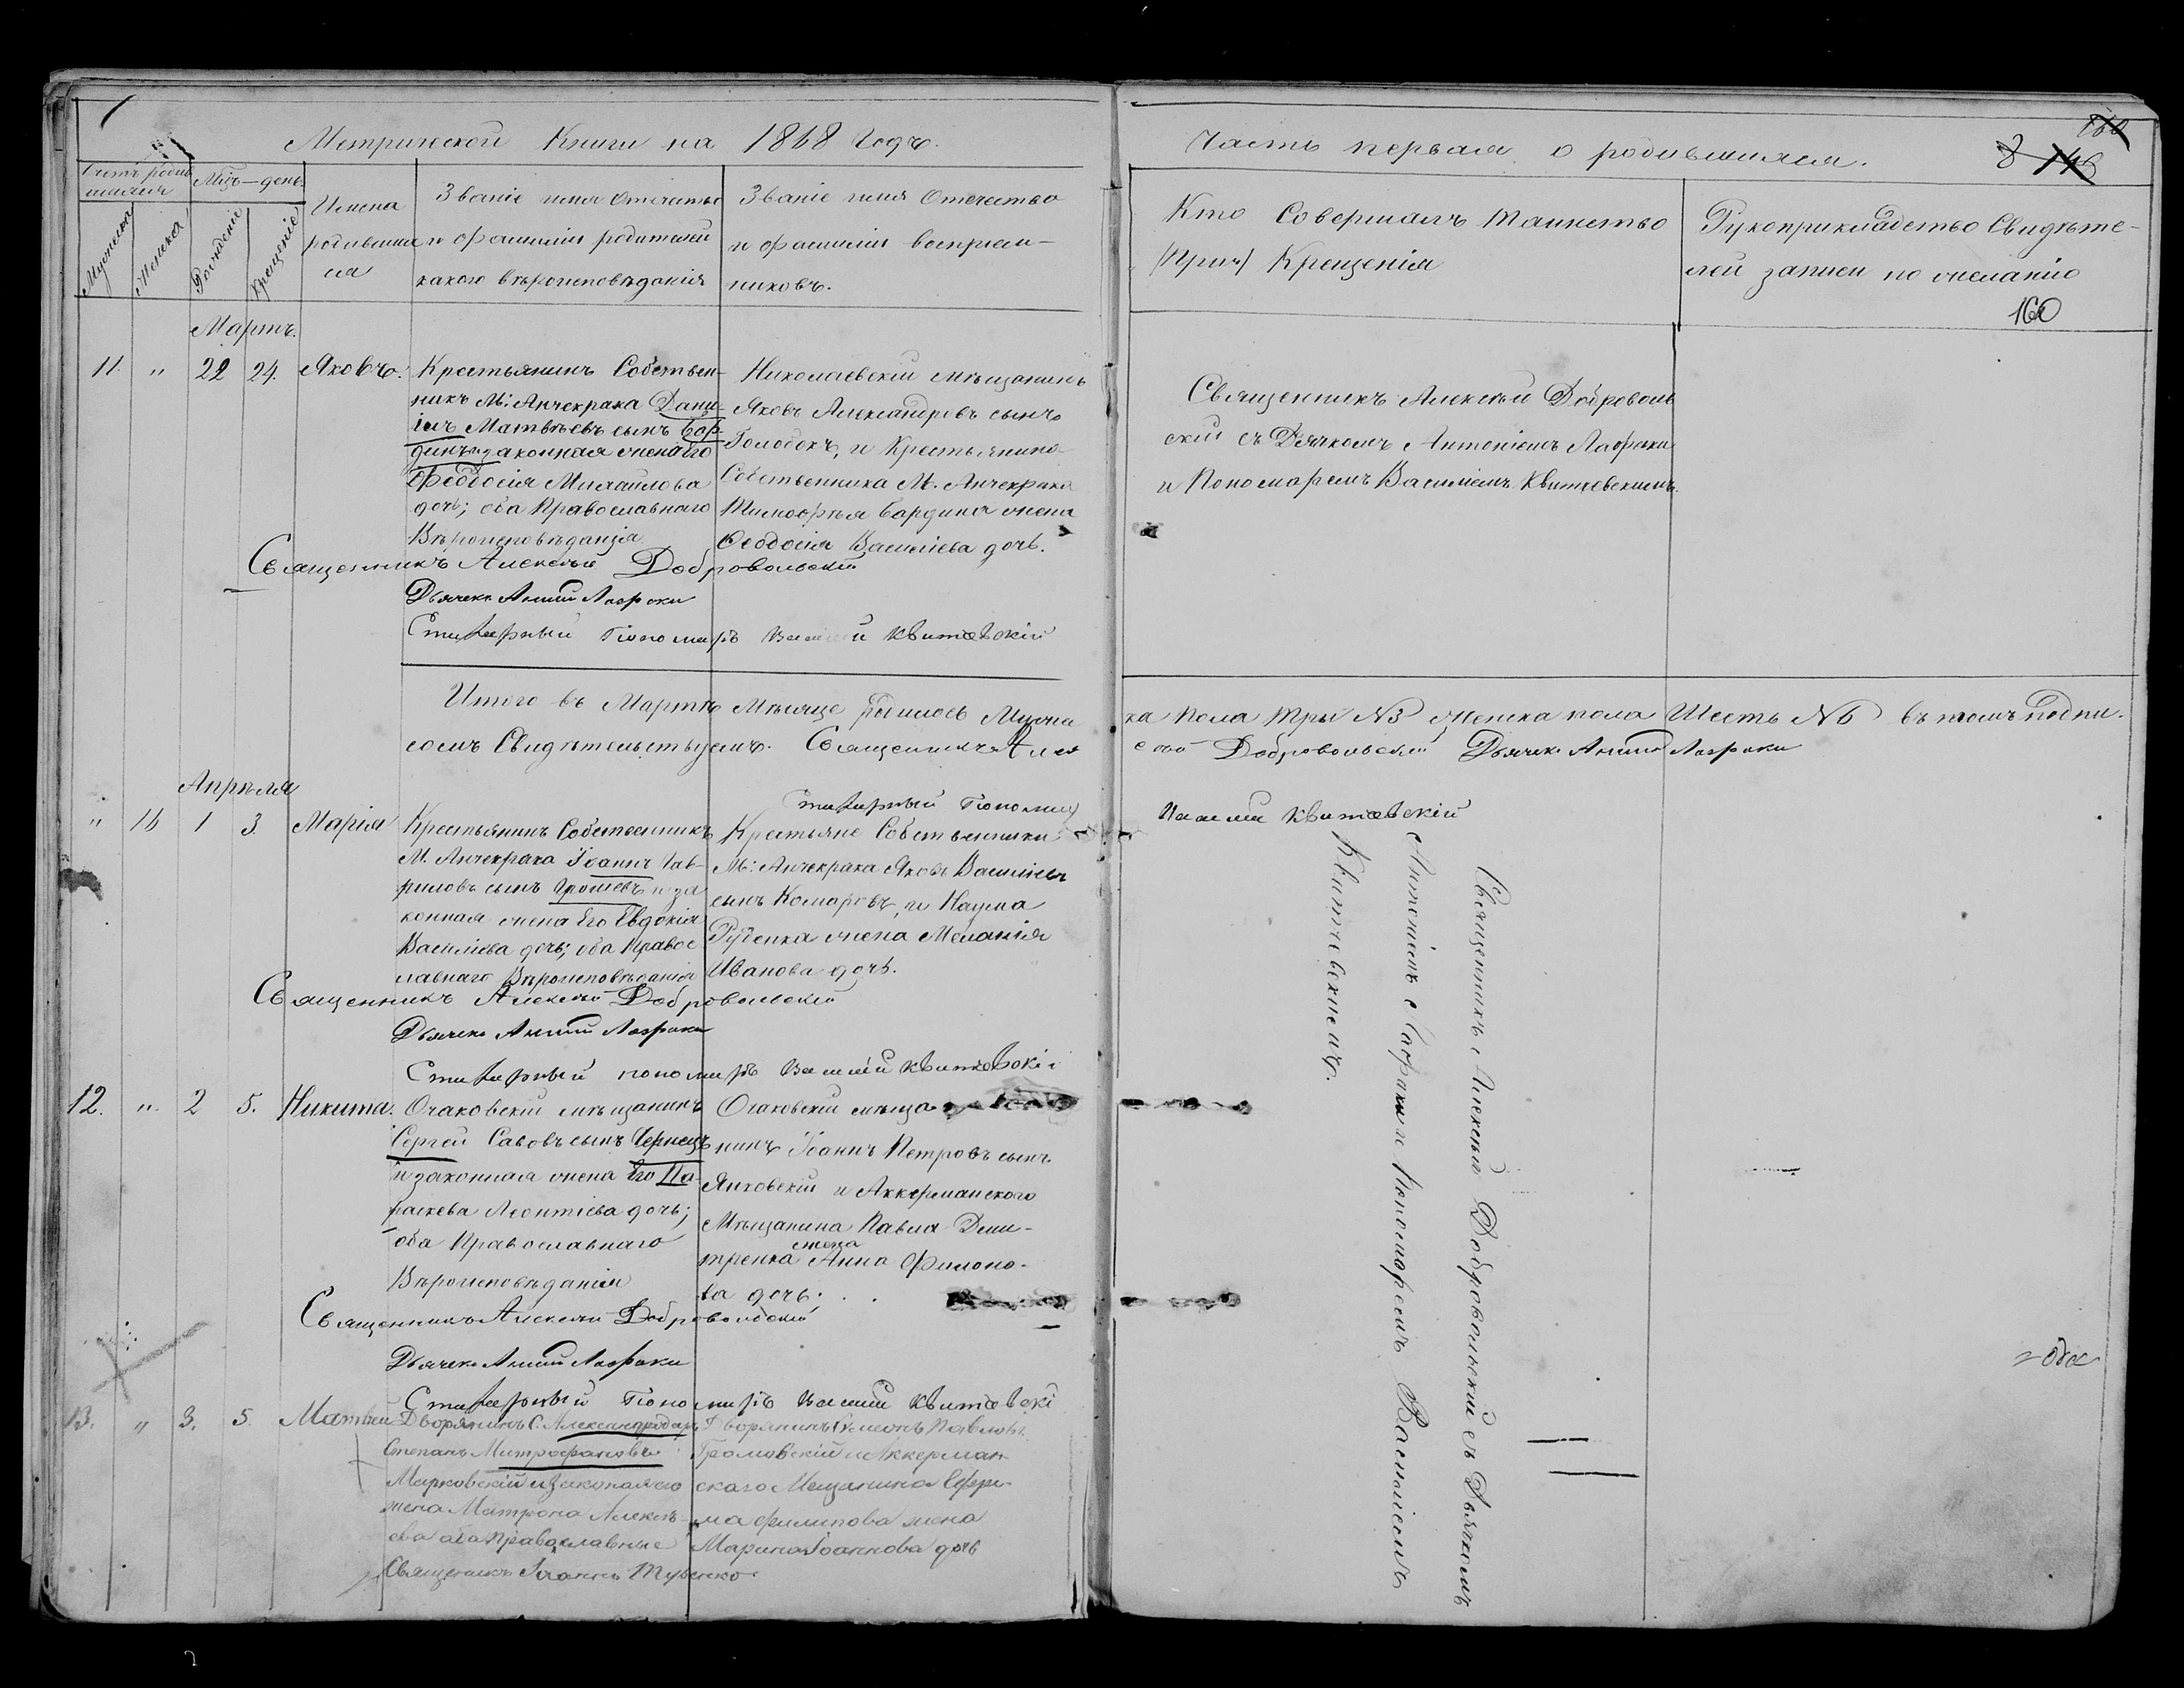 Метрической Книги на 1868 Годъ.
Часть первая о родившихся.
160
Счетъ родив-
шихся
Мѣц—день
Мужеска
Женска
Рожденія
Крещенія
Имена
родивших
ся
Званіе имя Отчество
и фамилія родителей
какого вѣроисповѣданія
Званіе имя Отчество
и фамилія воспріем-
никовъ.
Кто Совершалъ Таинство
Крещенія
Рукоприкладство Свидѣте-
лей записи по желанію
Мартъ.
11. " 22 24. Яковъ.
Крестьянинъ Собствен-
никъ М: Анчекрака Дани-
илъ Матвѣевъ сынъ Бор-
динъ и законная жена его
Феодосія Михайлова
дочь; оба Православнаго
Вѣроисповѣданія
Николаевскій мѣщанинъ
Яковъ Александровъ сынъ
Голодокъ, и Крестьянина-
Собственника М. Анчекрака
Тимофѣя Бордина жена
Феодосія Василіева дочь.
Священникъ Алексѣй Доброволь
скій съ Дьячкомъ Антоніемъ Лафаки
и Пономаремъ Василіемъ Квитковскимъ.
Священникъ Алексѣй Добровольскій
Дьячекъ Антоній Лафаки
Стихарный Пономарь Василій Квитковскій
Итого въ Мартѣ Мѣсяце родилось Мужеска пола три №3 женска пола Шесть №6 въ томъ подпи-
сомъ Свидѣтельствуемъ. Священникъ Алексѣй Добровольскій Дьячекъ Антоній Лафаки
Стихарный Пономарь Василій Квитковскій
Апрѣля
" 16 1 3. Марія
Крестьянинъ Собственникъ
М. Анчекрака Іоаннъ Гав-
риловъ сынъ Грошевъ и за
конная жена Его Евдокія
Василіева дочь; оба Правос
лавнаго Вѣроисповѣданія
Крестьяне Собственники
М: Анчекрака Яковъ Василіевъ
сынъ Комаровъ, и Наума
Руденка жена Меланія
Иванова дочь.
Священникъ Алексѣй Добровольскій
Дьячекъ Антоній Лафаки
Стихарный пономарь Василій Квитковскій
Священникъ Алексѣй Добровольскій съ Дьячкомъ
Антоніемъ Лафаки и Пономаремъ Василіемъ
Квитковскимъ.
12. " 2 5. Никита.
Очаковскій мѣщанинъ
Сергей Савовъ сынъ Чернецъ
и законная жена Его Па-
раскева Леонтіева дочь;
оба Православнаго
Вѣроисповѣданія
Очаковскій мѣща-
нинъ Іоаннъ Петровъ сынъ
Янковскій и Аккерманского
Мѣщанина Павла Дми-
тренка жена Анна Филимо-
ва дочь.
Священникъ Алексѣй Добровольскій
Дьячекъ Антоній Лафаки
Стихарный Пономарь Василій Квитковскі
13. " 3. 5. Матвей
Дворянинъ С. Александродаръ
Степанъ Митрофановъ
Марковскій и Законная его
жена Матрона Алексѣ-
ева оба православные
Дворянинъ Симеонъ Павловъ
Громовскій и Аккерман-
скаго Мещанина Ефри-
ма Филипова жена
Марина Іоаннова дочь
Священникъ Іоаннъ